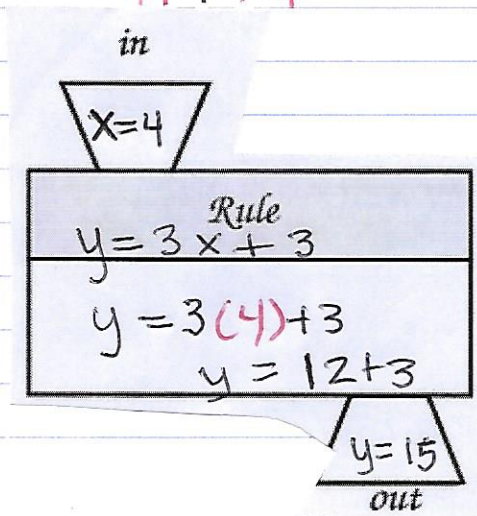 in
x=4
Rule
y=3x+3
y=3(4)+3
y=12+3
y=15
out